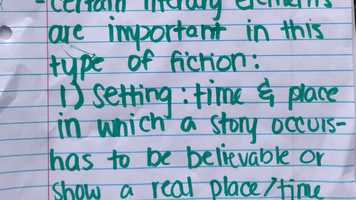 - Certain literary elements
are important in this
type of fiction:
1) Setting: time & place
in which a story occurs-
has to be believable or
show a real place/time